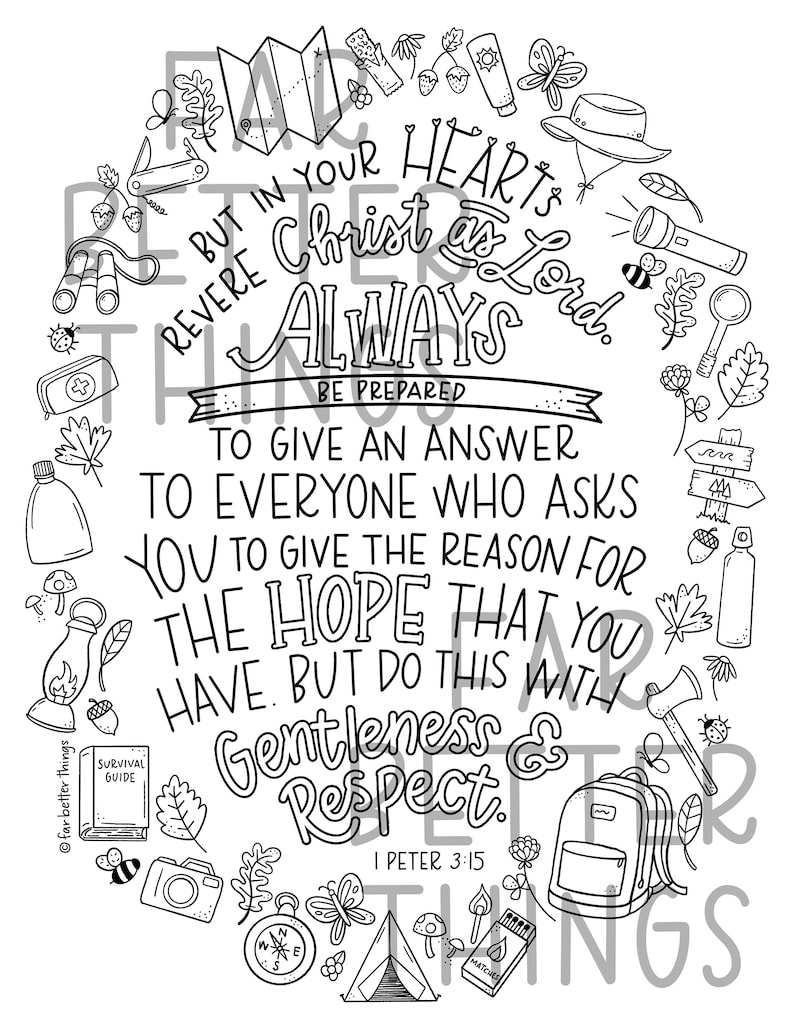 BUT IN YOUR HEARTS
REVERE Christ as Lord.
ALWAYS
BE PREPARED
TO GIVE AN ANSWER
TO EVERYONE WHO ASKS
YOU TO GIVE THE REASON FOR
THE HOPE THAT YOU
HAVE. BUT DO THIS WITH
Gentleness &
Respect.
1 PETER 3:15
FAR
BETTER
THINGS
FAR
BETTER
THINGS
SURVIVAL
GUIDE
© far better things
N
W E
S
MATCHES